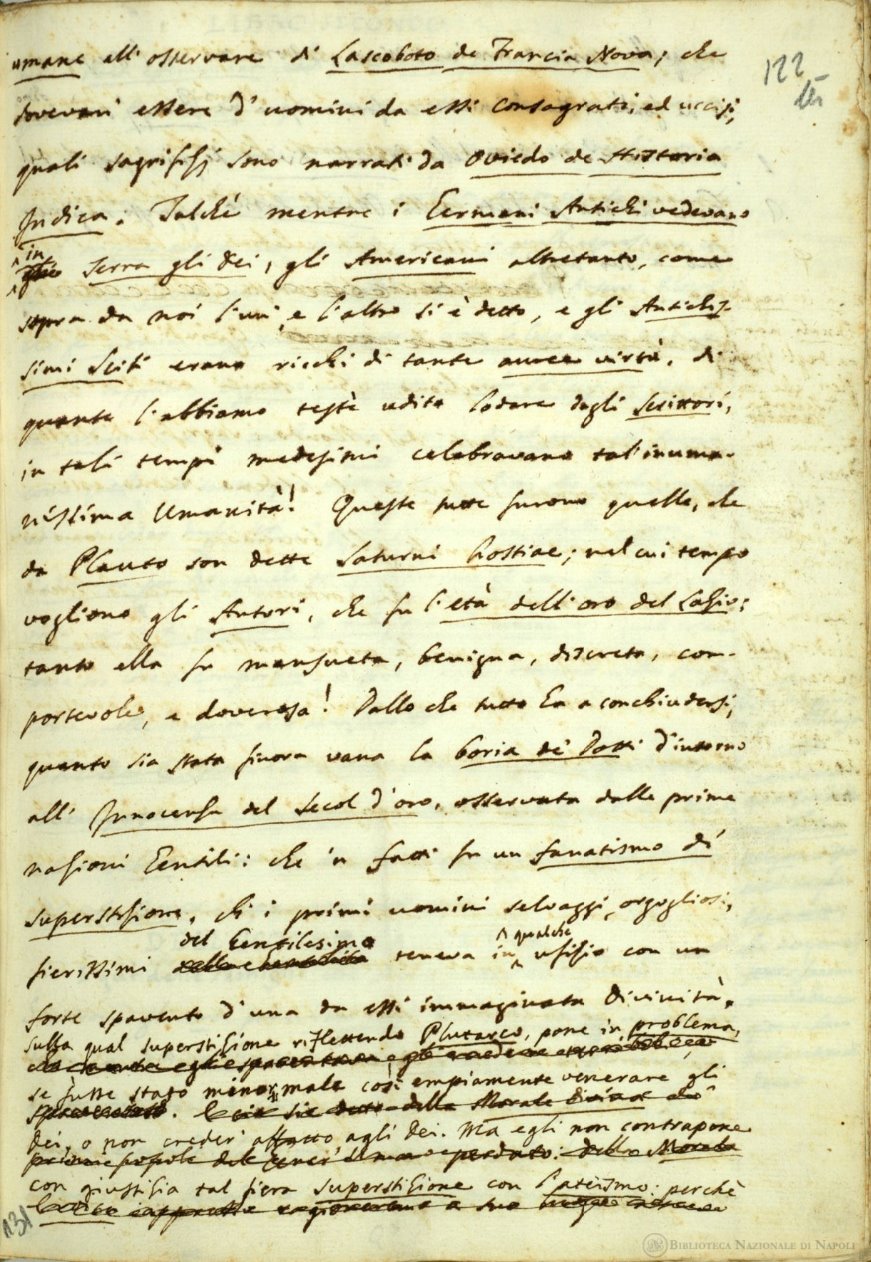 umane all' osservare di Lascoboto de Francia Nova; che
122
dovevani essere d' uomini da essi consagrati, ed uccisi,
quali sagrifizj sono narrati da Oviedo de Historia
Indica. Talchè mentre i Germani Antichi vedevano
in
Terra gli dei, gli Americani altretanto, come
sopra da noi l'uni, e l'altro si è detto, e gli Antichis-
simi Sciti erano ricchi di tante auree virtù, di
quante l'abbiamo testè udito lodare dagli Scrittori,
in tali tempi medesimi celebravano tal'inuma-
nissima Umanità! Queste tutte furono quelle, che
da Plauto son dette Saturni hostiae; nel cui tempo
vogliono gli Autori, che fu l'età dell'oro del Lazio:
tanto ella fu mansueta, benigna, discreta, com-
portevole, e doverosa! Dallo che tutto ha a conchiudersi,
quanto sia stata finora vana la boria de' Dotti d'intorno
all' Innocenza del Secol d'oro, osservata dalle prime
nazioni Gentili: che in fatti fu un fanatismo di
superstizione, ch' i primi uomini selvaggi, orgogliosi,
del Gentilesimo qualche
fierissimi teneva in ufizio con un
forte spavento d'una da essi immaginata Divinità.
Sulla qual superstizione riflettendo Plutarco, pone in problema,
se fusse stato minor male così empiamente venerare gli
dei, o non creder' affatto agli dei. Ma egli non contrapone
con giustizia tal fiera superstizione con l'ateismo: perchè
131
BIBLIOTECA NAZIONALE DI NAPOLI